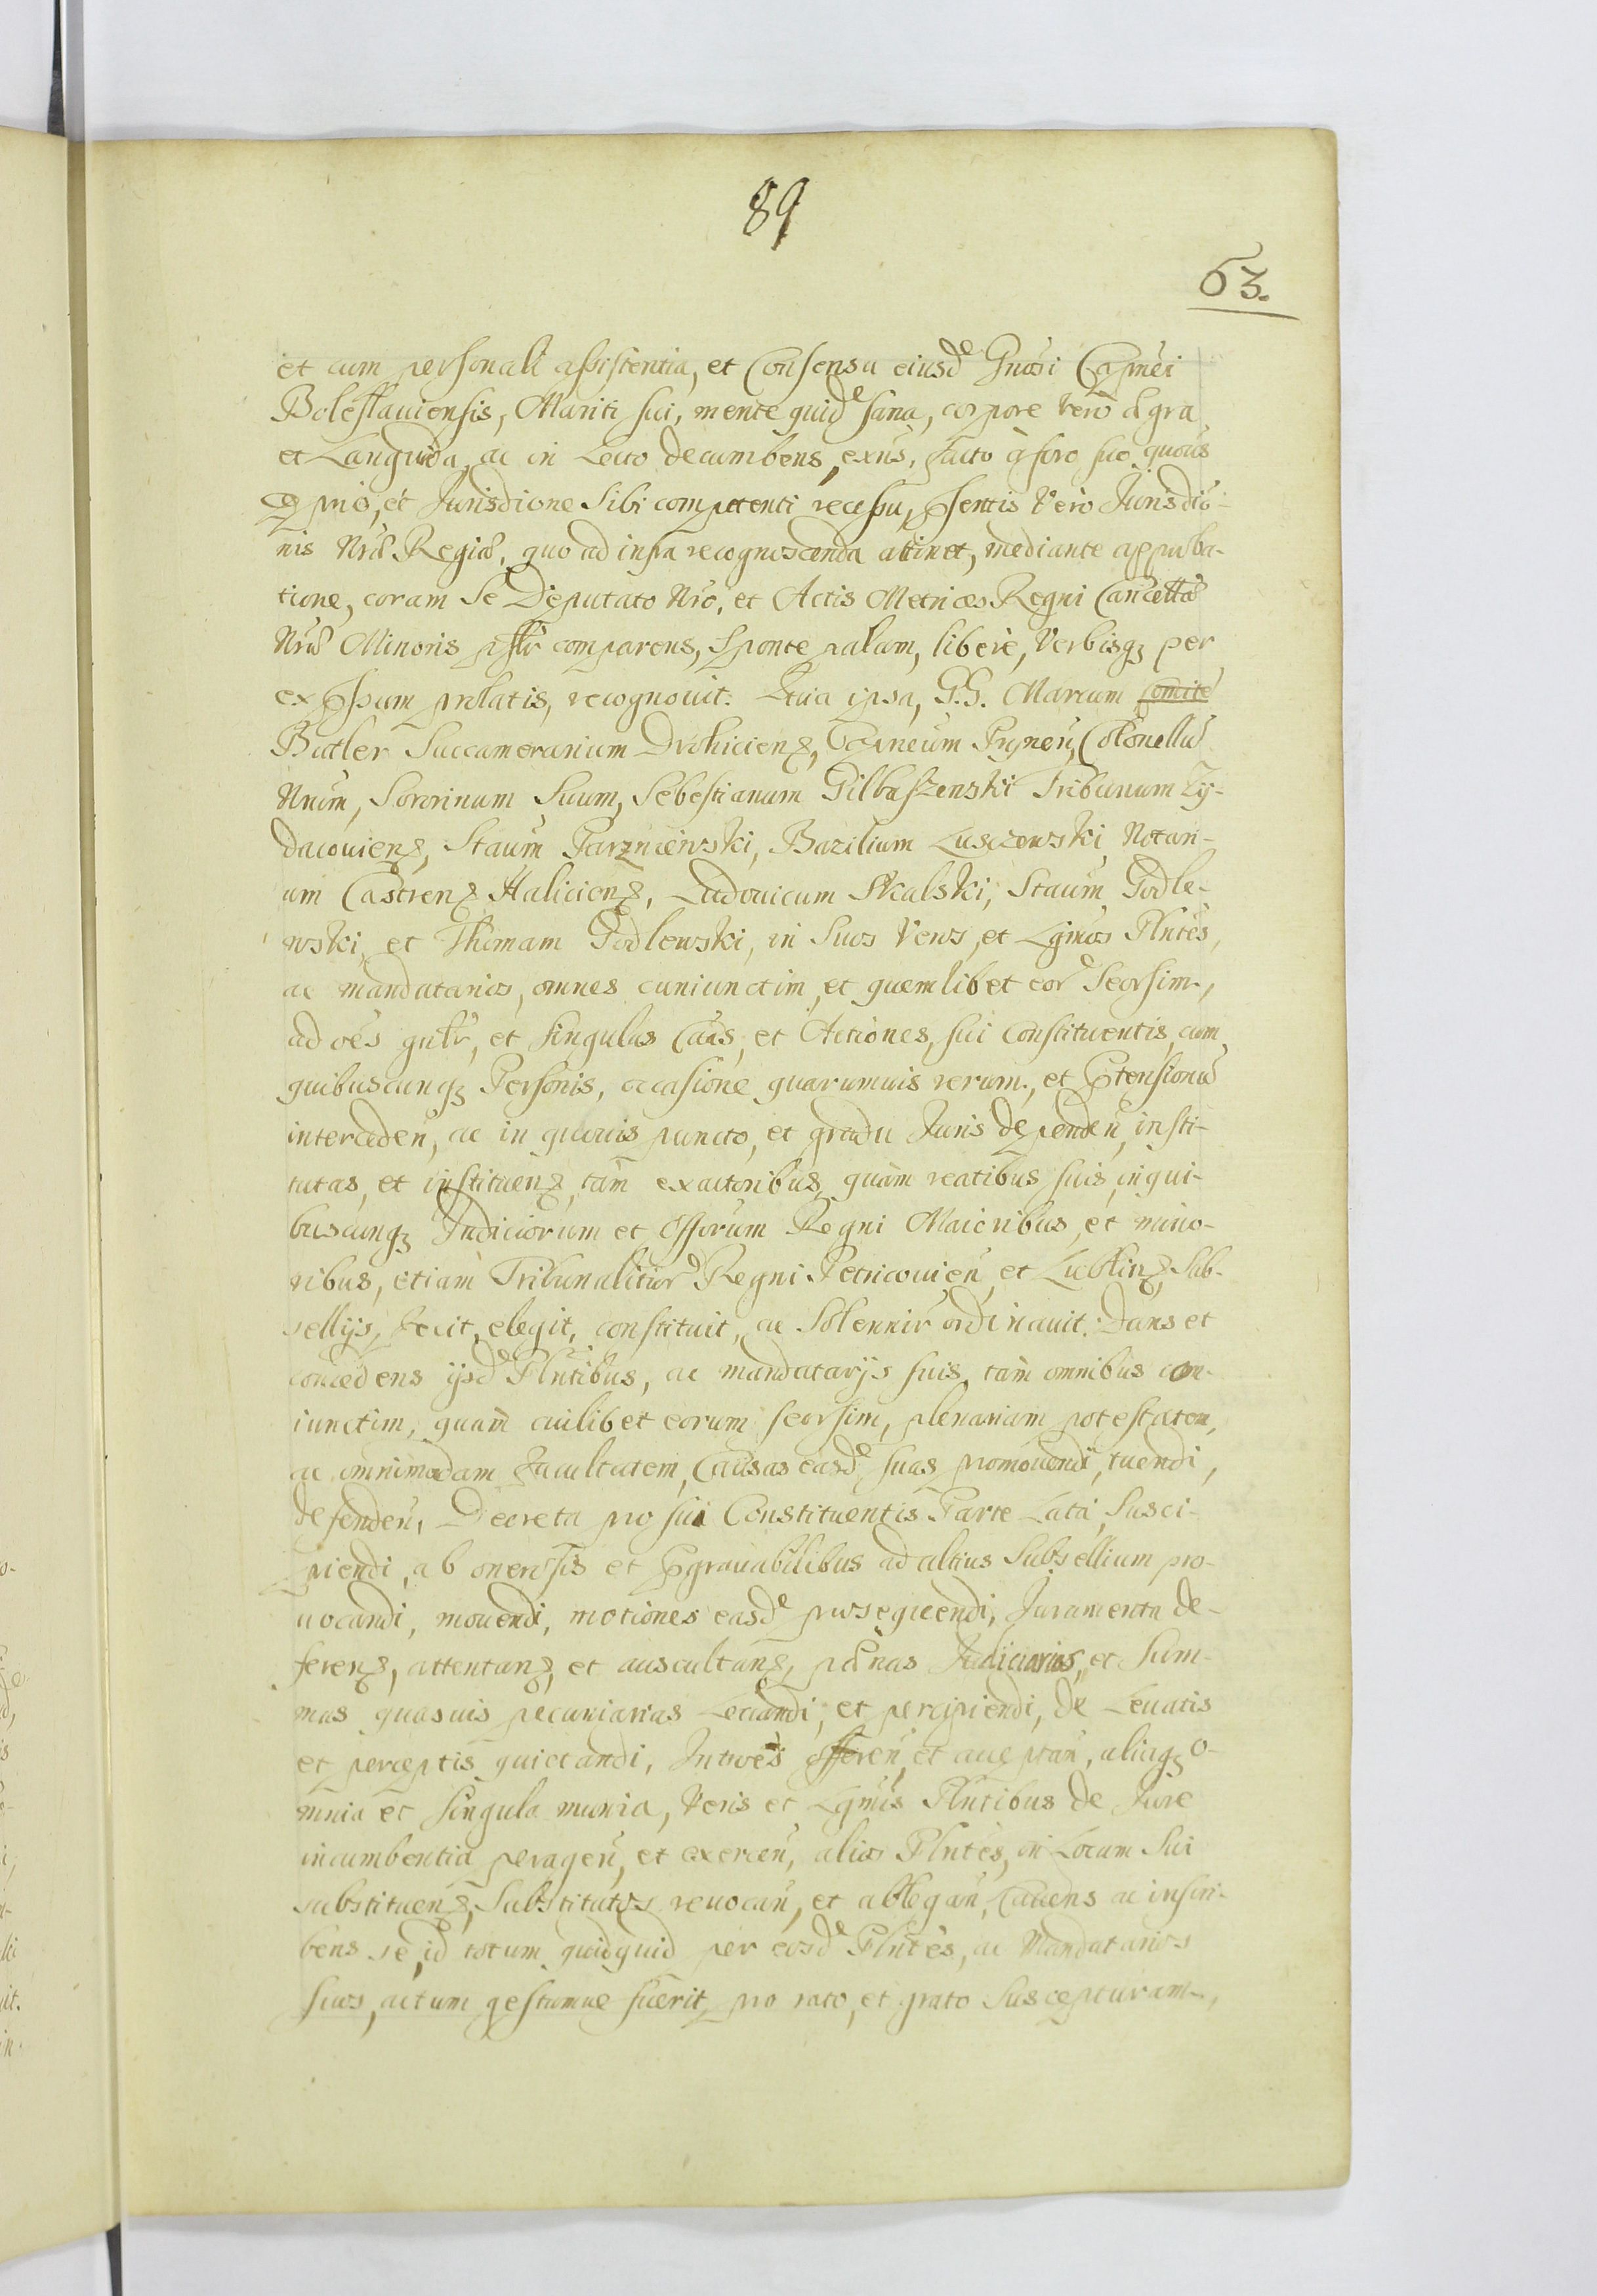 89
63.
et cum personali assistentia, et Consensu eiusde Gnosi Capnei
Boleslauiensis, Mariti sui, mente quide sana, corpore vero ægra
et Languida, ac in Lecto decumbens, exns, facto à foro suo quouis
prio, et Jurisdione Sibi competenti recessu, psentis vero Jurisdio-
nis Nræ Regiæ, quo ad infra recognoscenda attinet, mediante approba-
tione, coram Se Deputato Nro, et Actis Metrices Regni Cancellæ
Nræ Minoris psltr comparens, sponte palam, libere, Verbisq3 per
expssum prolatis, recognouit. Quia ipsa, G.G. Marcum Comite
Butler Succamerarium Drohiciens, Capneum Pryneń, Colonellū
Nrum, Sororinum Suum, Sebestianum Gilbaszenski Tribunum Zy-
dacouiens, Staum Parzniewski, Bazilium Luszczewski Notari-
um Castrens Haliciens, Ludouicum Skalski, Staum Godle-
wski, et Thomam Godlewski, in Suos Veros, et Lgmos Plntes,
ac mandatarios, omnes cuniunctim, et quemlibet eor Seorsim,
ad oes gnltr, et singulas Cau͞s, et Actiones, sui Constituentis, cum
quibuscunq3 Personis, occasione quarumuis rerum, et Ptensionū
interceden͞, ac in quouis puncto, et gradu Juris dependen͞, insti-
tutas, et instituens, tam exactoribus, quàm reatibus suis, in qui-
buscunq3 Judiciorum et Officrum Regni Maioribus, et mino-
ribus, etiam Tribunalitior Regni Petricouien͞, et Lublins, Sub-
sellijs, fecit, elegit, constituit, ac Solennir ordinauit. Dans et
concedens ijsde Plntibus, ac mandatarijs suis, tàm omnibus con-
iunctim, quam cuilibet eorum seorsim, plenariam potestatem,
ac omnimodam facultatem, Causas easde suas promouendi, tuendi,
defenden͞, Decreta pro sui Constituentis Parte Lata, Susci-
piendi, ab onerosis et Pgrauabilibus ad altius Subsellium pro-
uocandi, mouendi, motiones easde prosequendi, Juramenta de-
ferens, attentans, et auscultans, pænas Judiciarias, et Sum-
mas quasuis pecuniarias Leuandi, et percipiendi, de Leuatis
et perceptis quietandi, Intrões offeren͞, et acceptan͞, aliaq3 o-
mnia et singula munia, Veris et Lgmis Plntibus de Jure
incumbentia peragen͞, et exercen͞, alios Plntes, in Locum Sui
substituens, Substitutos reuocan͞, et ablegan͞, Cauens ac inscri-
bens se, id totum quidquid per eosde Plntes, ac Mandatarios
suos, actum gestumue fuerit, pro rato, et grato Suscepturam,